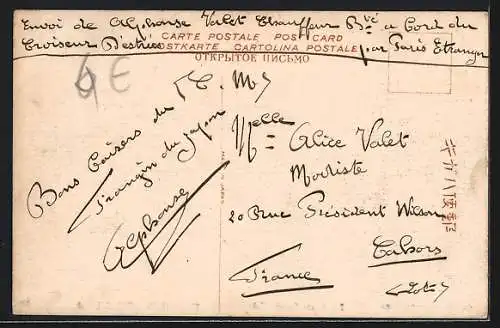 Envoi de Alphonse Valet Chauffeur Bvé a bord du
Croiseur D'estrées par Paris Etranger
CARTE POSTALE POST CARD
POSTKARTE CARTOLINA POSTALE
ОТКРЫТОЕ ПИСЬМО
6 E
(C. M)
Bons baisers du
frangin du Japon
Alphonse
Melle Alice Valet
Modiste
20 Rue Président Wilson
Cahors
France
(Lot)